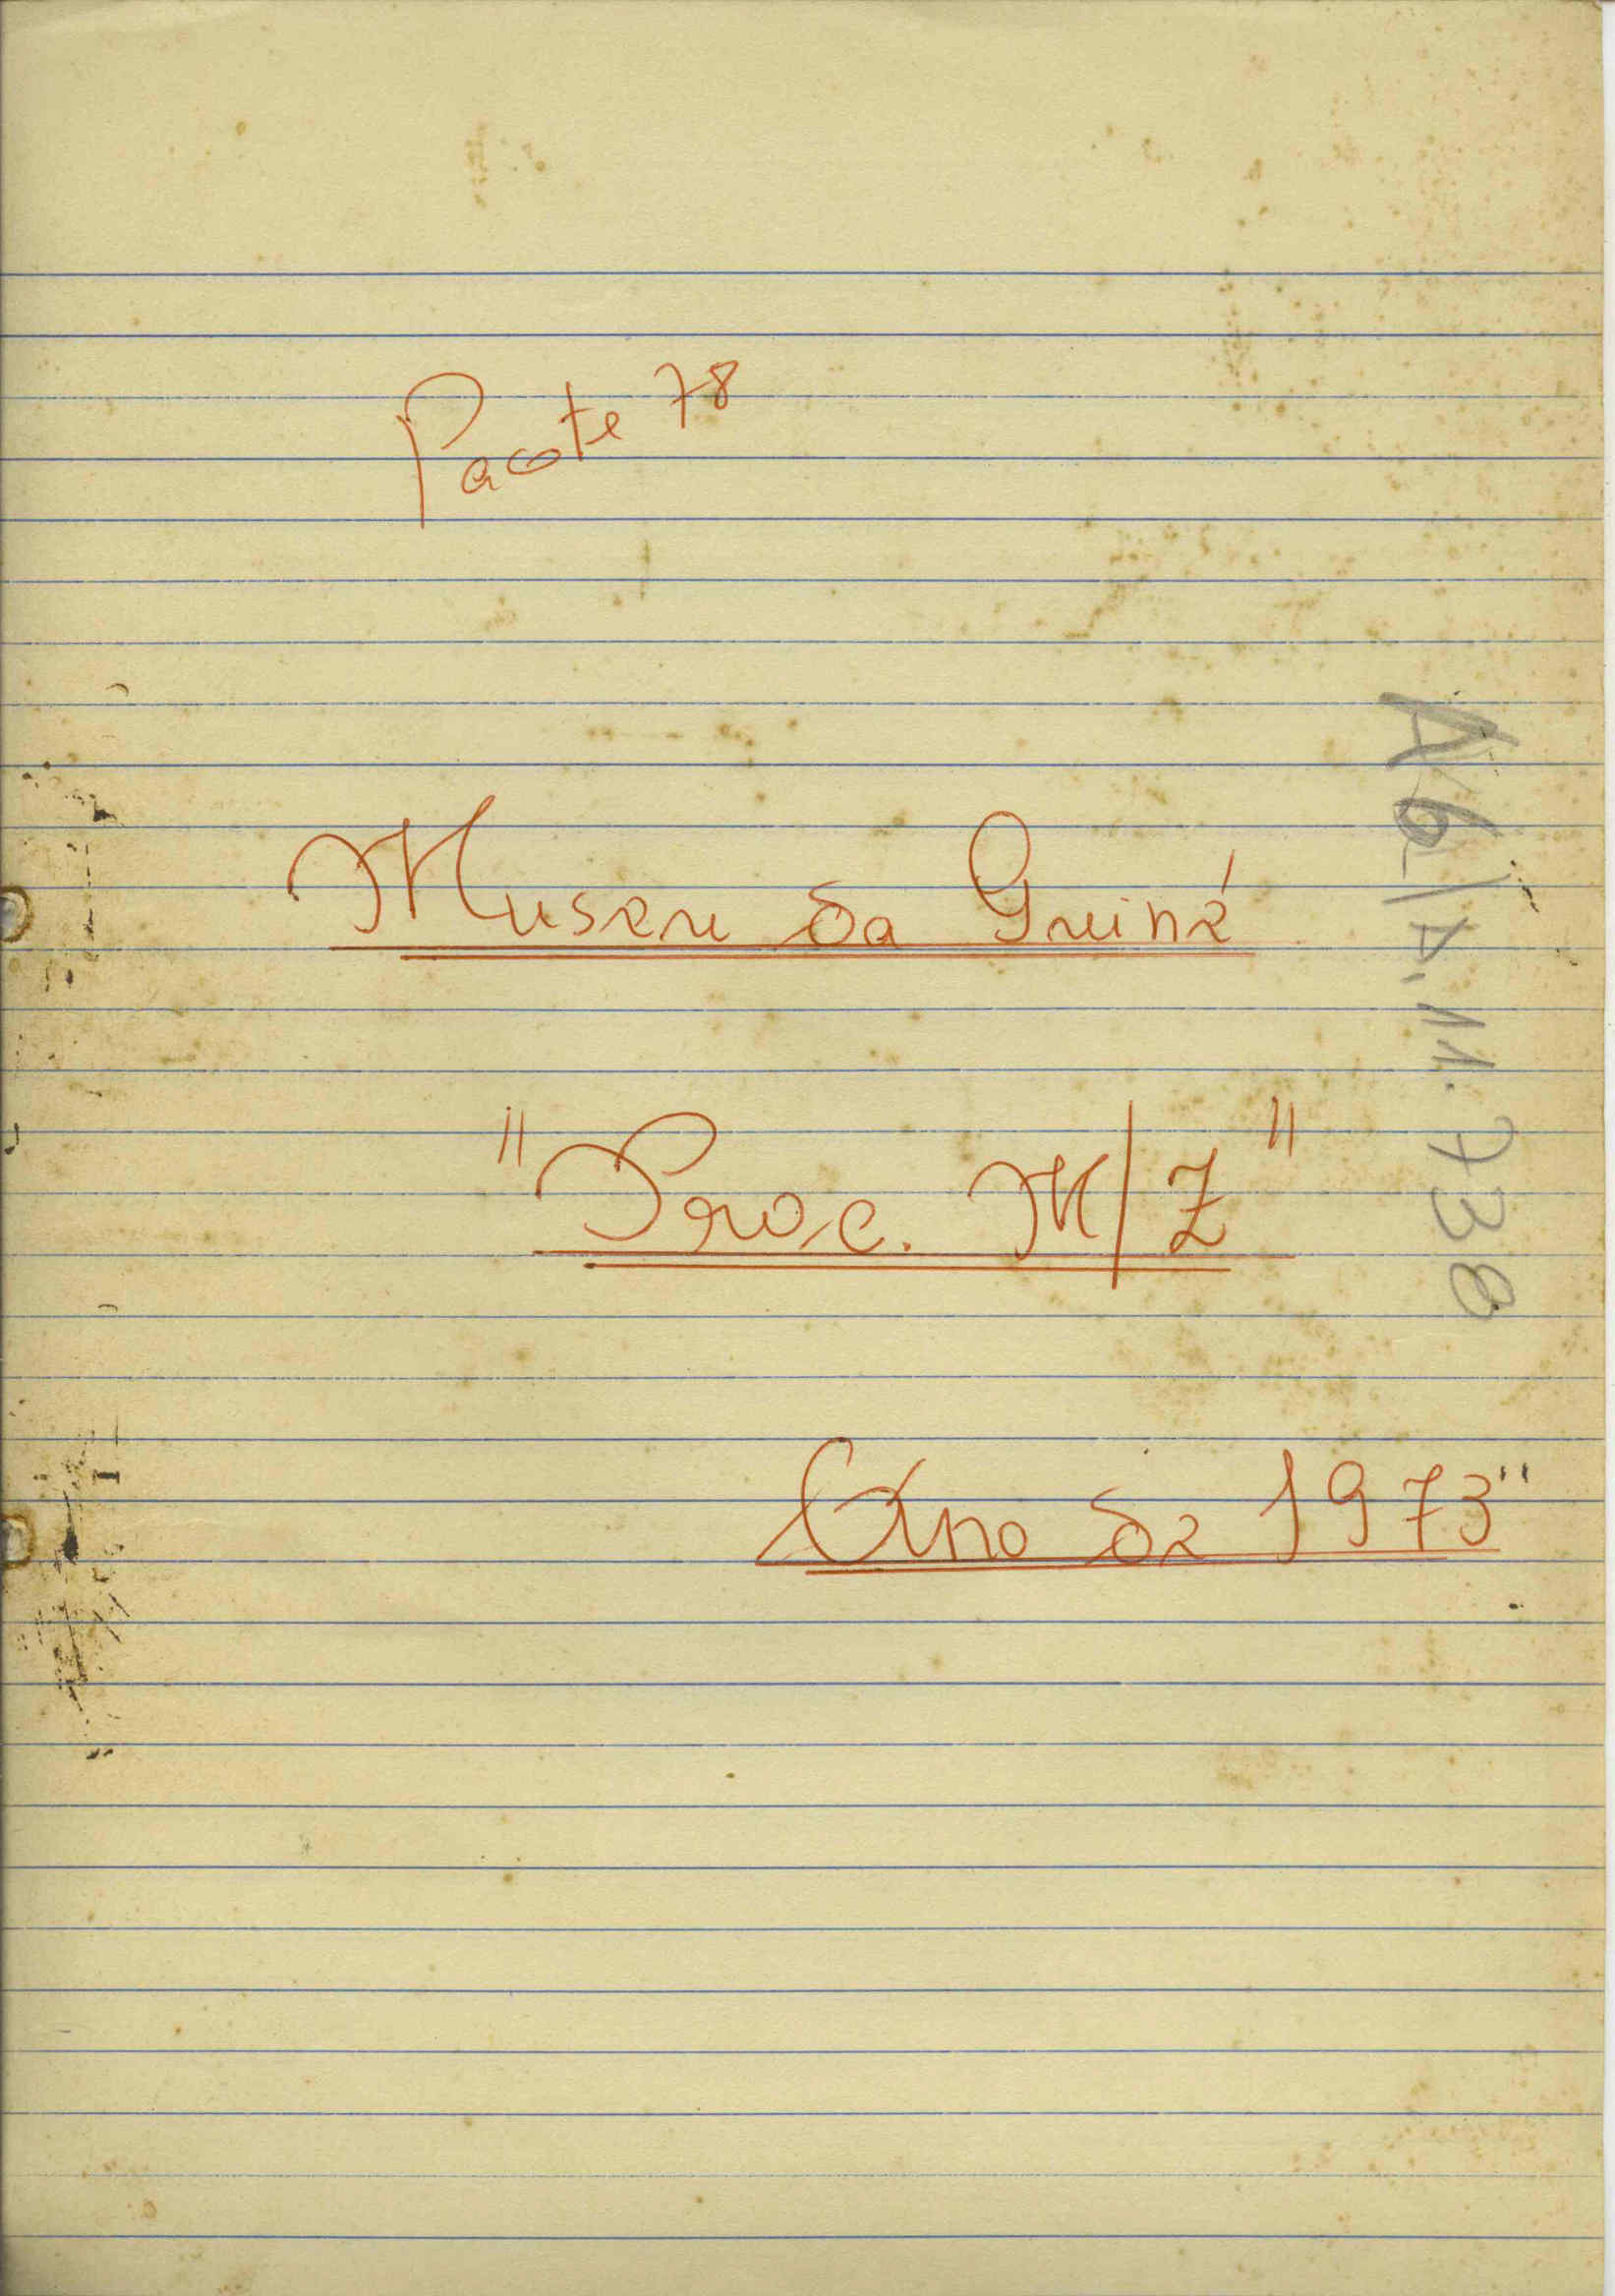 Pacote 78
Museu da Guiné
"Proc. M/Z"
Ano de 1973"
A6/A.11.738